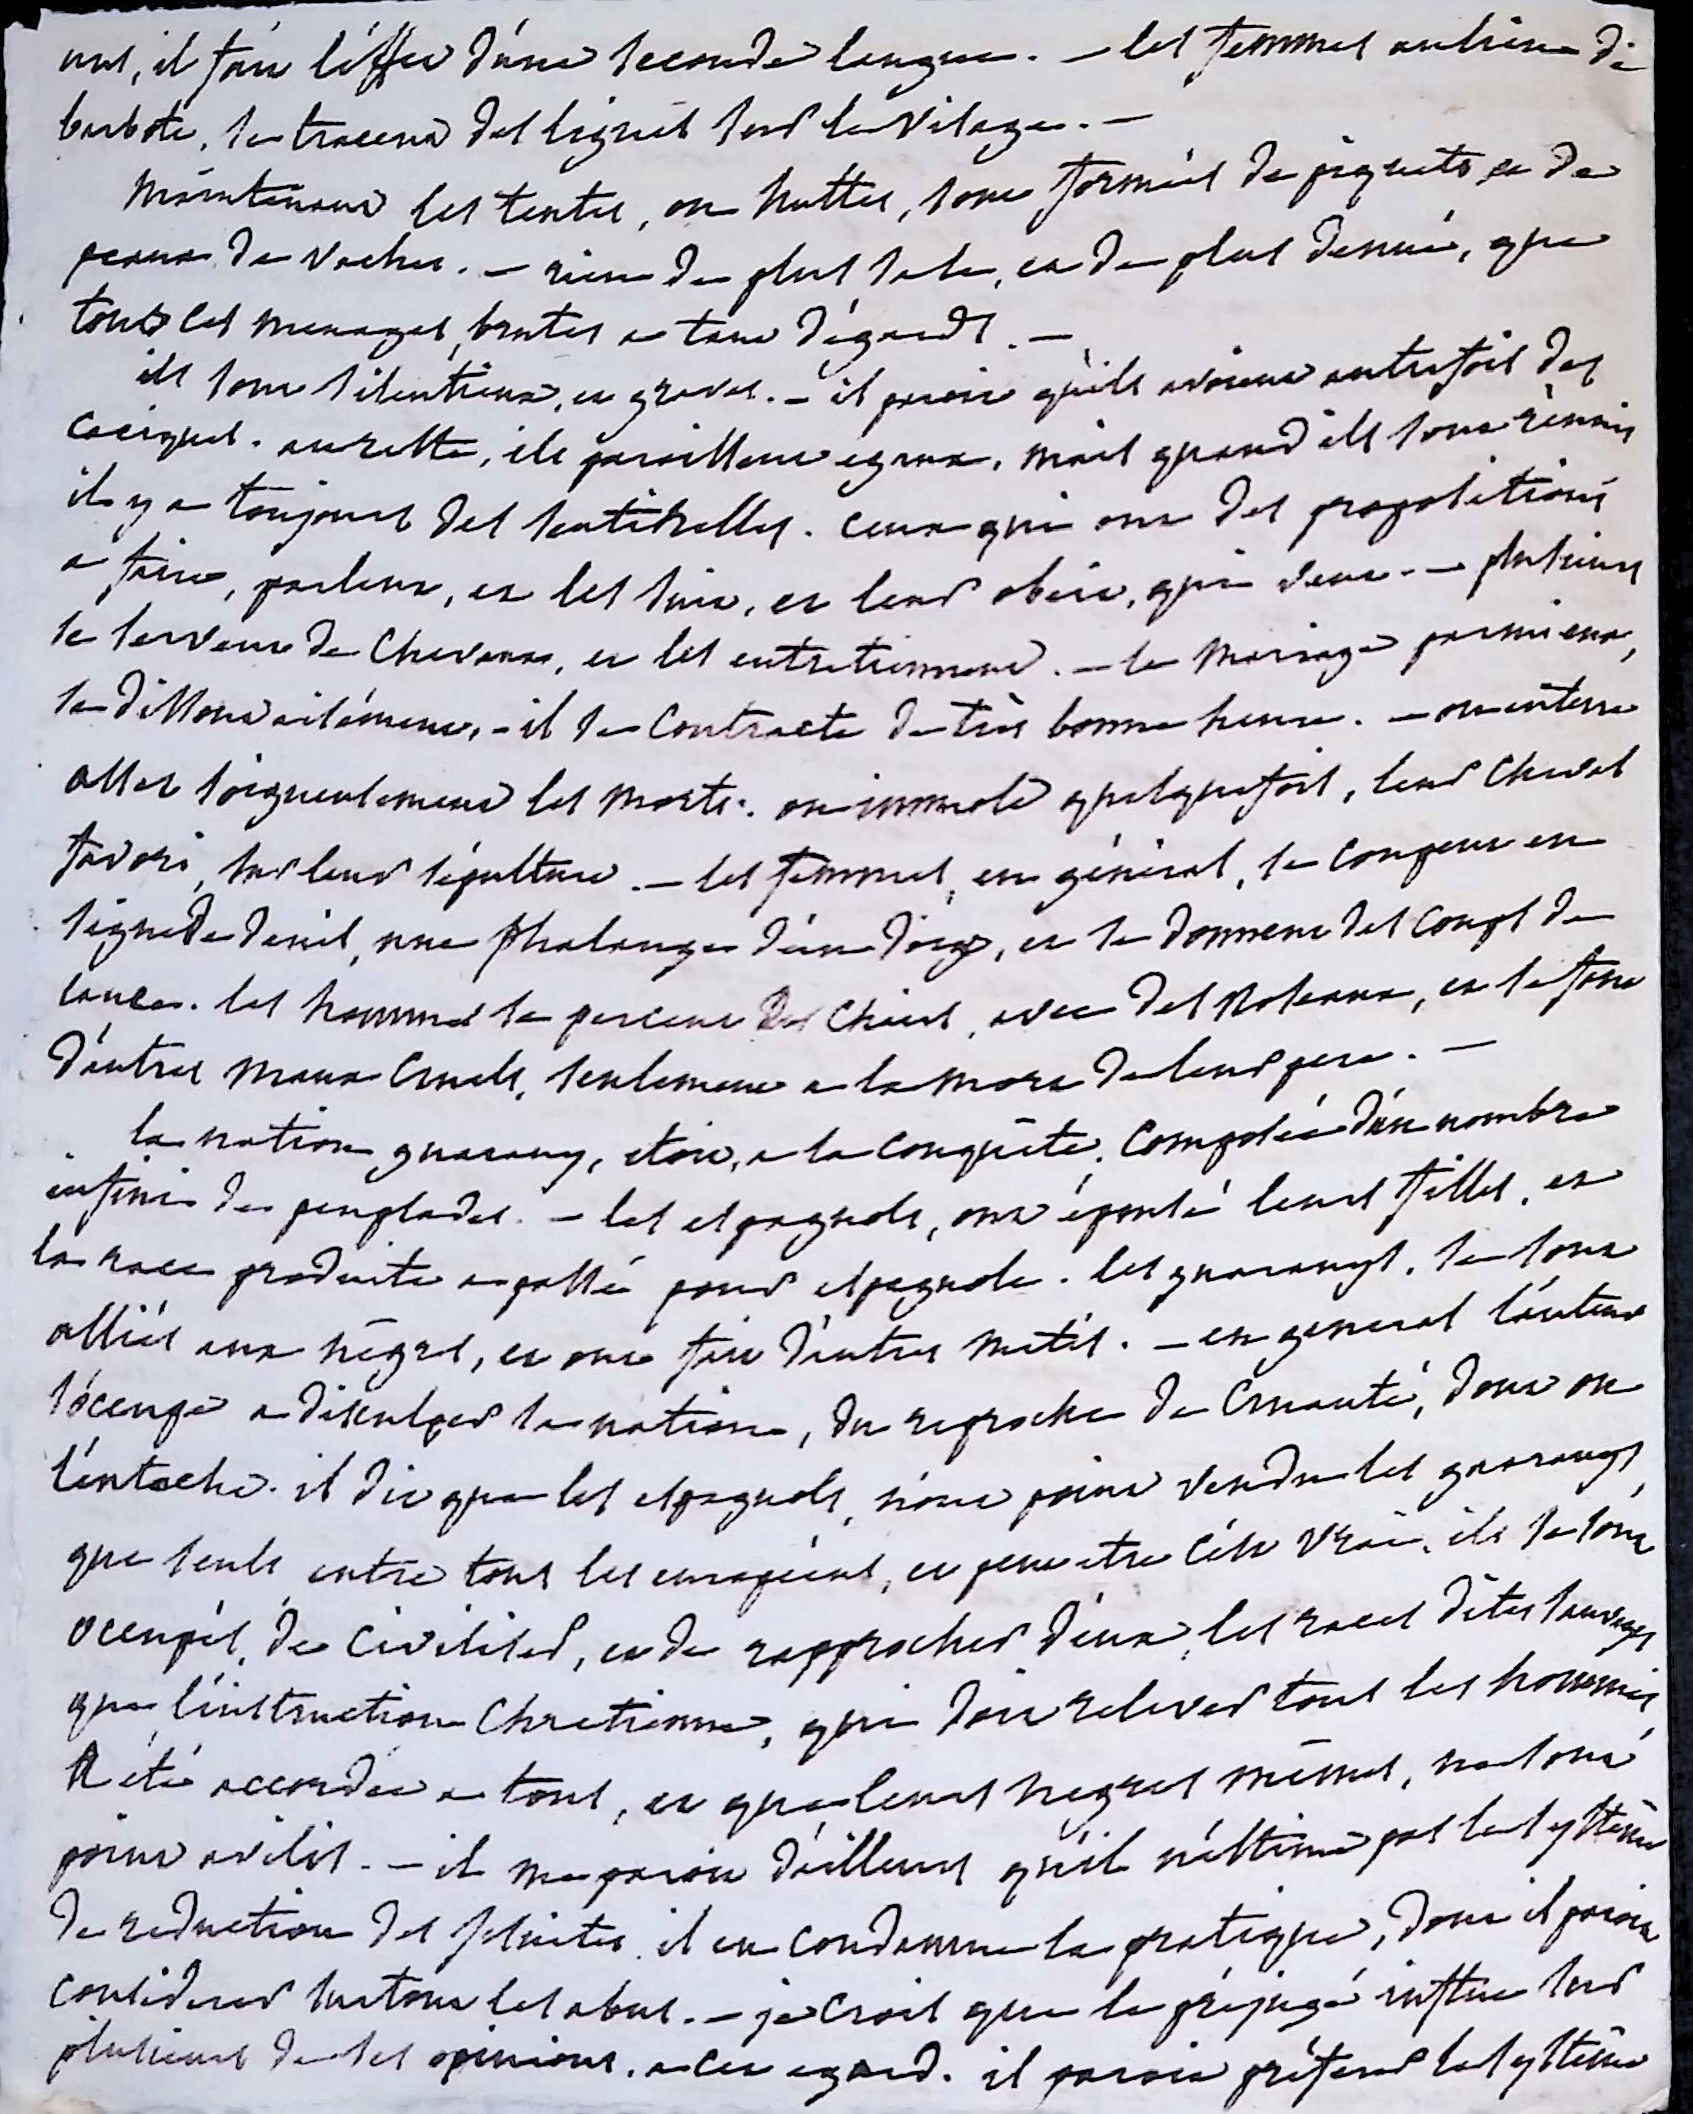 nus, il fait l'effet d'une seconde langue. — les femmes au lieu de
barbote, se tracent des lignes sur le visage. —
Maintenant les tentes, ou huttes, sont formées de piquets et de
peaux de vaches. — rien de plus sale, et de plus denué, que
tous ces menages, brutes a tous égards. —
ils sont silentieux, et graves. — il paroit qu'ils avoient autrefois des
caciques. au reste, ils paroissent egaux, mais quand ils sont réunis
il y a toujours des sentinelles. ceux qui ont des propositions
a faire, parlent, et les suit, et leur obeit, qui veut. — plusieurs
se servent de chevaux, et les entretiennent. — le mariage parmi eux,
se dissout aisément, - il se contracte de très bonne heure. — on enterre
assez soigneusement les morts. on immole quelquefois, leur cheval
favori, sur leur sépulture. — les femmes, en général, se coupent en
signe de deuil, une phalange d'un doigt, et se donnent des coups de
lance. les hommes se percent les chairs, avec des roseaux, et se font
d'autres maux cruels, seulement a la mort de leur pere. —
la nation guarany, étoit, a la conquête, composée d'un nombre
infini de peuplades. — les espagnols, ont épousé leurs filles, et
la race produite a passé pour espagnole. les guaranys, se sont
alliés aux nègres, et ont fait d'autres metis. — en general l'auteur
s'occupe a disculper sa nation, du reproche de cruauté, dont on
l'entache. il dit que les espagnols, n'ont point vendu les guaranys,
que seuls entre tous les européens, et peut etre c'est vrai, ils se sont
occupés, de civiliser, et de rapprocher d'eux, les races dites sauvages
que l'instruction chretienne, qui doit relever tous les hommes,
a été accordée a tous, et que leurs negres mêmes, ne sont
point avilis. — il me paroit d'ailleurs qu'il n'estime pas le systême
de reduction des jesuites. il en condamne la pratique, dont il paroit
considerer surtout les abus. — je crois que le préjugé influe sur
plusieurs de ses opinions, a cet egard. il paroit préferer le systême